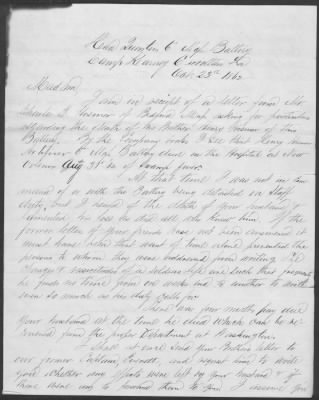 Head Quarters 6" Mass Battery
Camp Kearny Carrollton La
Oct 23rd 1862
Madam
I am in receipt of a letter from Mr
of Mass asking for particulars
regarding the death of his Brother Henry of this
Battery. By the Company books I see that
6" Mass Battery died in the Hospital at New
Orleans Aug 3rd of Swamp fever.
At that time I was not in com
mand of or with the Battery being detailed on Staff
duty, but I heard of the death of your husband &
lamented his loss as did all who knew him. If the
former letter of your friends has not been answered it
must have been that want of time alone prevented the
persons to whom they were addressed from writing. The
& necessities of a soldiers life are such that frequently
he finds no time from one weeks end to another to write
even so much as his duty calls for.
There was four months pay due
your husband at the time he died which can be re-
covered from the proper Department at Washington.
Shall at once send your Brothers letter to
our former Captain Everett, and request him to write
you whether any effects were left by your husband & if
there were any to forward them to you. I assure you